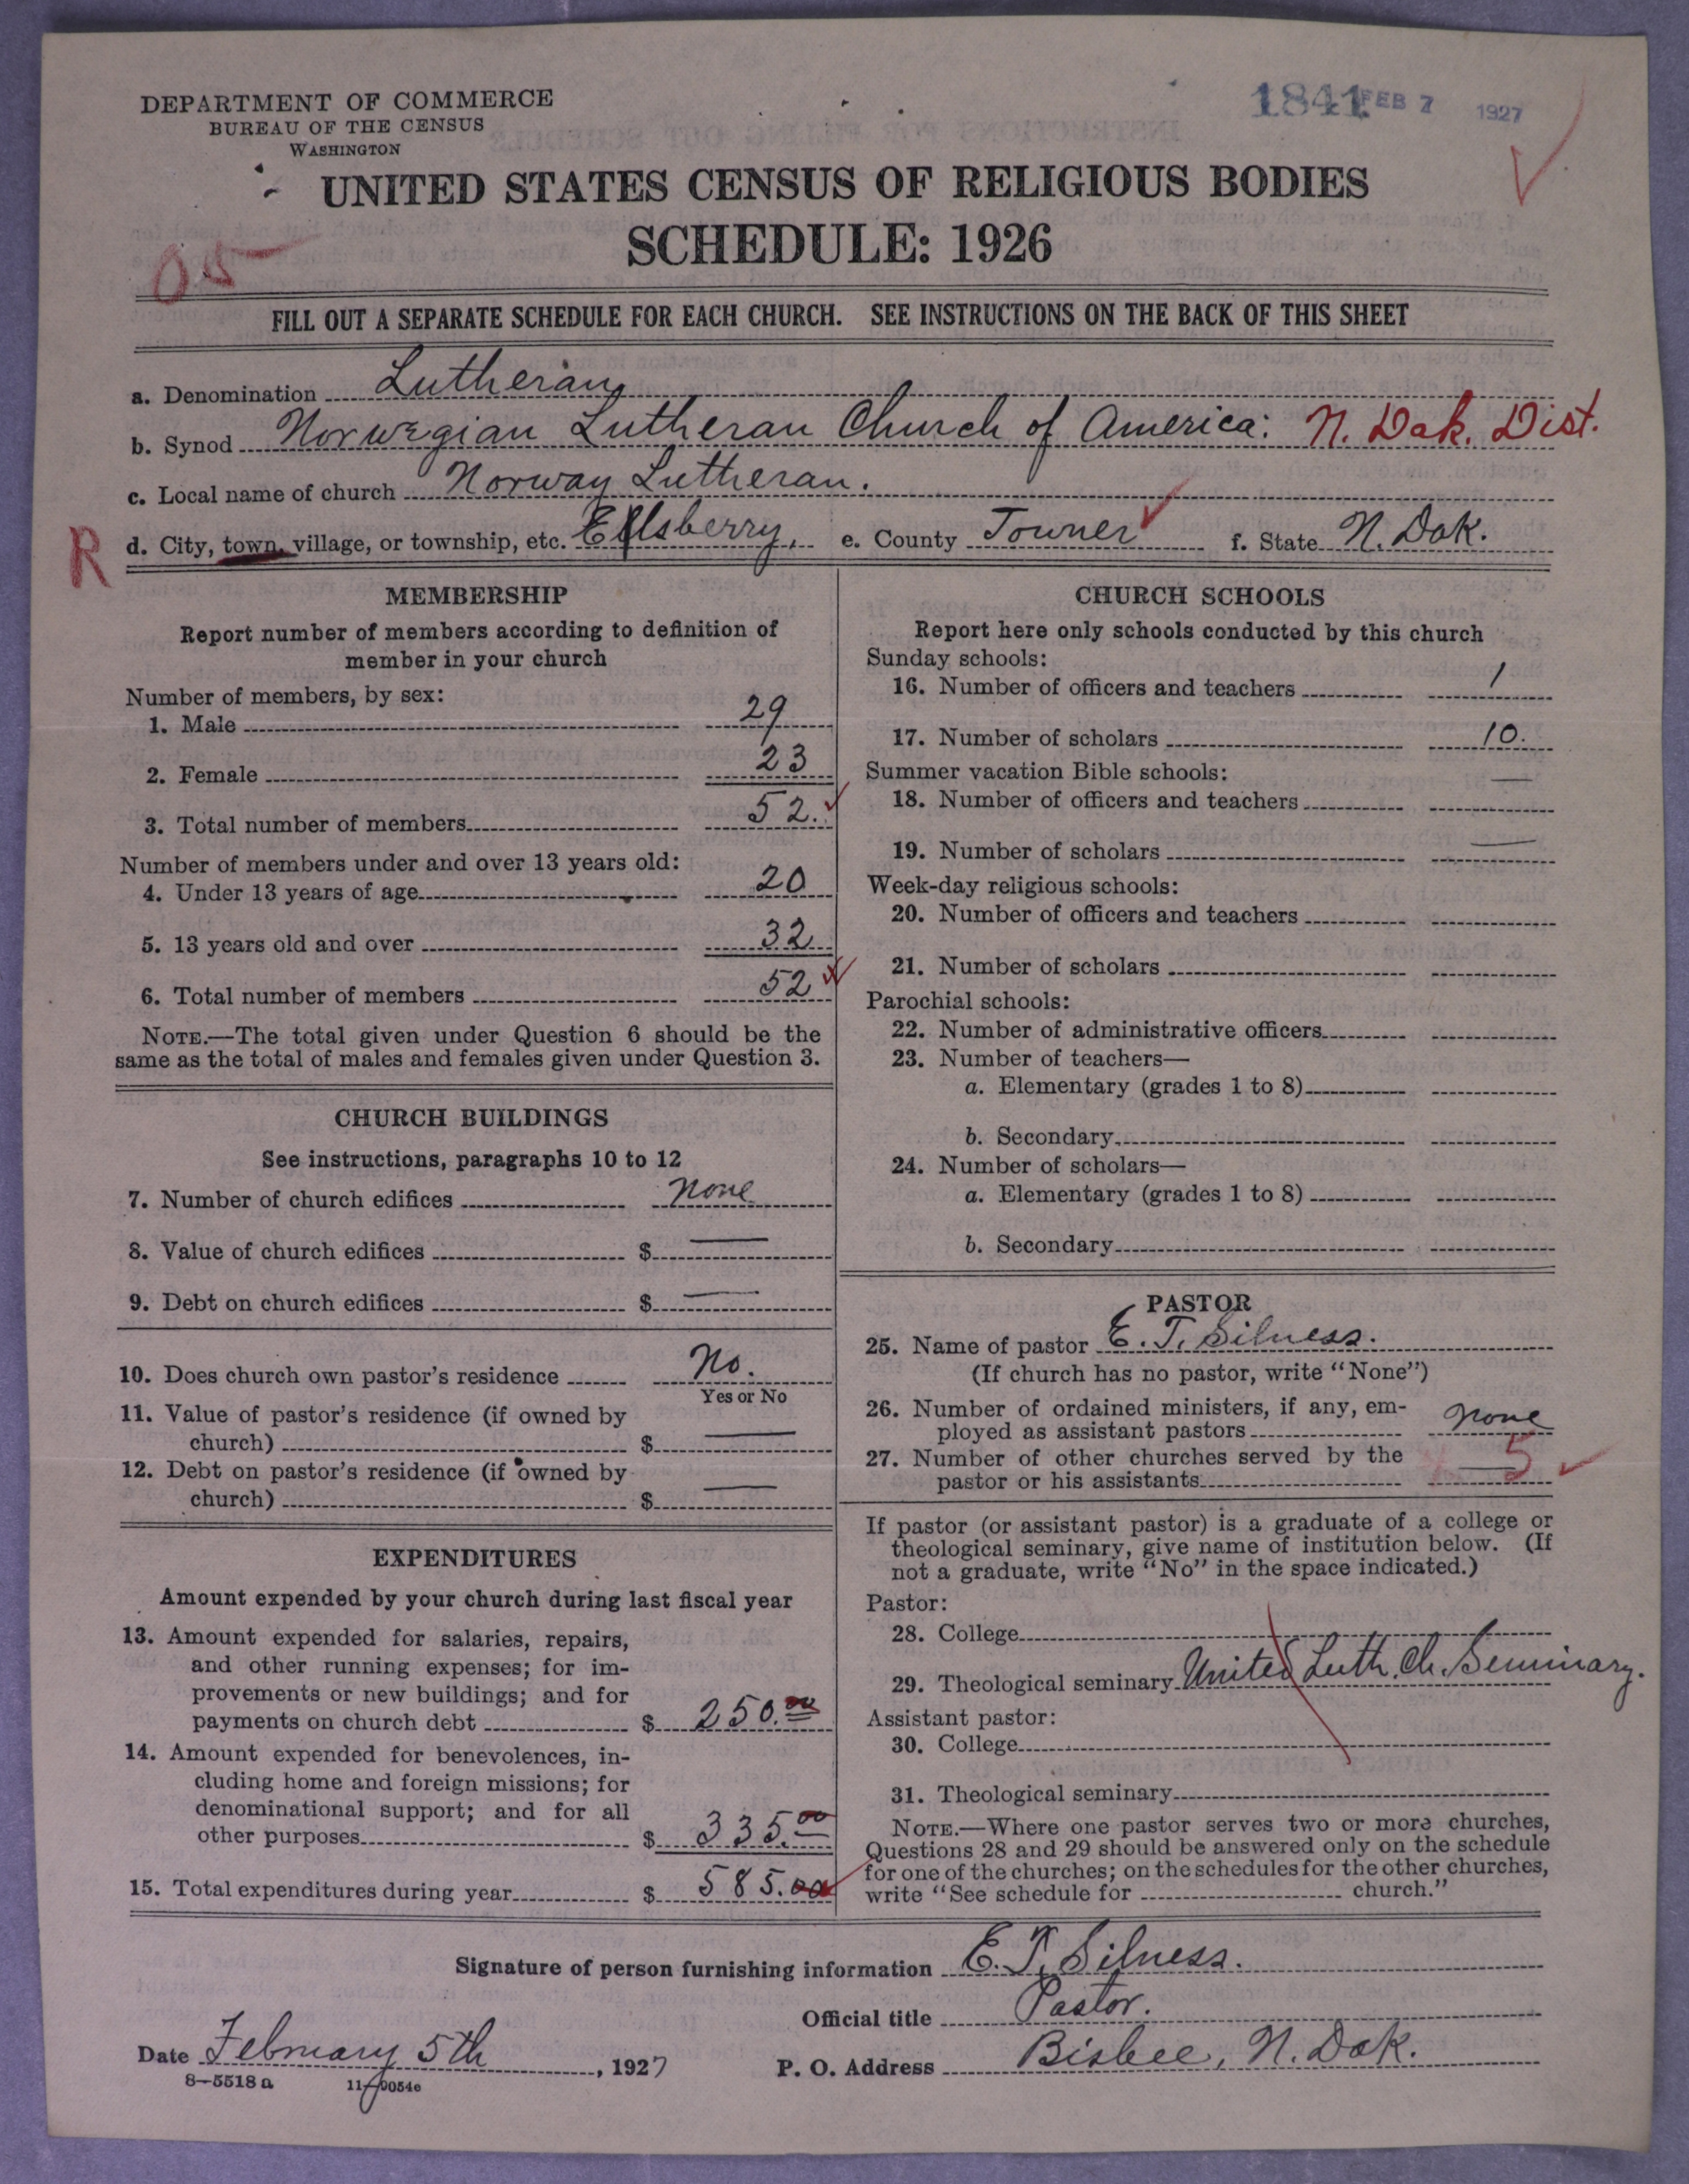 DEPARTMENT OF COMMERCE
BUREAU OF THE CENSUS
WASHINGTON
1841 FEB 7 1927
UNITED STATES CENSUS OF RELIGIOUS BODIES
SCHEDULE: 1926
05
FILL OUT A SEPARATE SCHEDULE FOR EACH CHURCH. SEE INSTRUCTIONS ON THE BACK OF THIS SHEET
a. Denomination Lutheran
b. Synod Norwegian Lutheran Church of America: N. Dak. Dist.
c. Local name of church Norway Lutheran.
R d. City, town, village, or township, etc. Ellsberry, e. County Towner f. State N. Dak.
MEMBERSHIP
Report number of members according to definition of
member in your church
Number of members, by sex:
1. Male 29
2. Female 23
3. Total number of members 52.
Number of members under and over 13 years old:
4. Under 13 years of age 20
5. 13 years old and over 32
6. Total number of members 52
NOTE.—The total given under Question 6 should be the
same as the total of males and females given under Question 3.
CHURCH BUILDINGS
See instructions, paragraphs 10 to 12
7. Number of church edifices none
8. Value of church edifices $ —
9. Debt on church edifices $ —
10. Does church own pastor's residence No.
Yes or No
11. Value of pastor's residence (if owned by
church) $ —
12. Debt on pastor's residence (if owned by
church) $ —
EXPENDITURES
Amount expended by your church during last fiscal year
13. Amount expended for salaries, repairs,
and other running expenses; for im-
provements or new buildings; and for
payments on church debt $ 250.00
14. Amount expended for benevolences, in-
cluding home and foreign missions; for
denominational support; and for all
other purposes $ 335.00
15. Total expenditures during year $ 585.00
CHURCH SCHOOLS
Report here only schools conducted by this church
Sunday schools:
16. Number of officers and teachers 1
17. Number of scholars 10.
Summer vacation Bible schools:
18. Number of officers and teachers —
19. Number of scholars —
Week-day religious schools:
20. Number of officers and teachers
21. Number of scholars
Parochial schools:
22. Number of administrative officers
23. Number of teachers—
a. Elementary (grades 1 to 8)
b. Secondary
24. Number of scholars—
a. Elementary (grades 1 to 8)
b. Secondary
PASTOR
25. Name of pastor E. T. Silness.
(If church has no pastor, write "None")
26. Number of ordained ministers, if any, em-
ployed as assistant pastors none
27. Number of other churches served by the
pastor or his assistants 5
If pastor (or assistant pastor) is a graduate of a college or
theological seminary, give name of institution below. (If
not a graduate, write "No" in the space indicated.)
Pastor:
28. College
29. Theological seminary United Luth. Ch. Seminary.
Assistant pastor:
30. College
31. Theological seminary
NOTE.—Where one pastor serves two or more churches,
Questions 28 and 29 should be answered only on the schedule
for one of the churches; on the schedules for the other churches,
write "See schedule for church."
Signature of person furnishing information E. T. Silness.
Official title Pastor.
Date February 5th, 1927 P. O. Address Bisbee, N. Dak.
8—5518 a 11—9054c